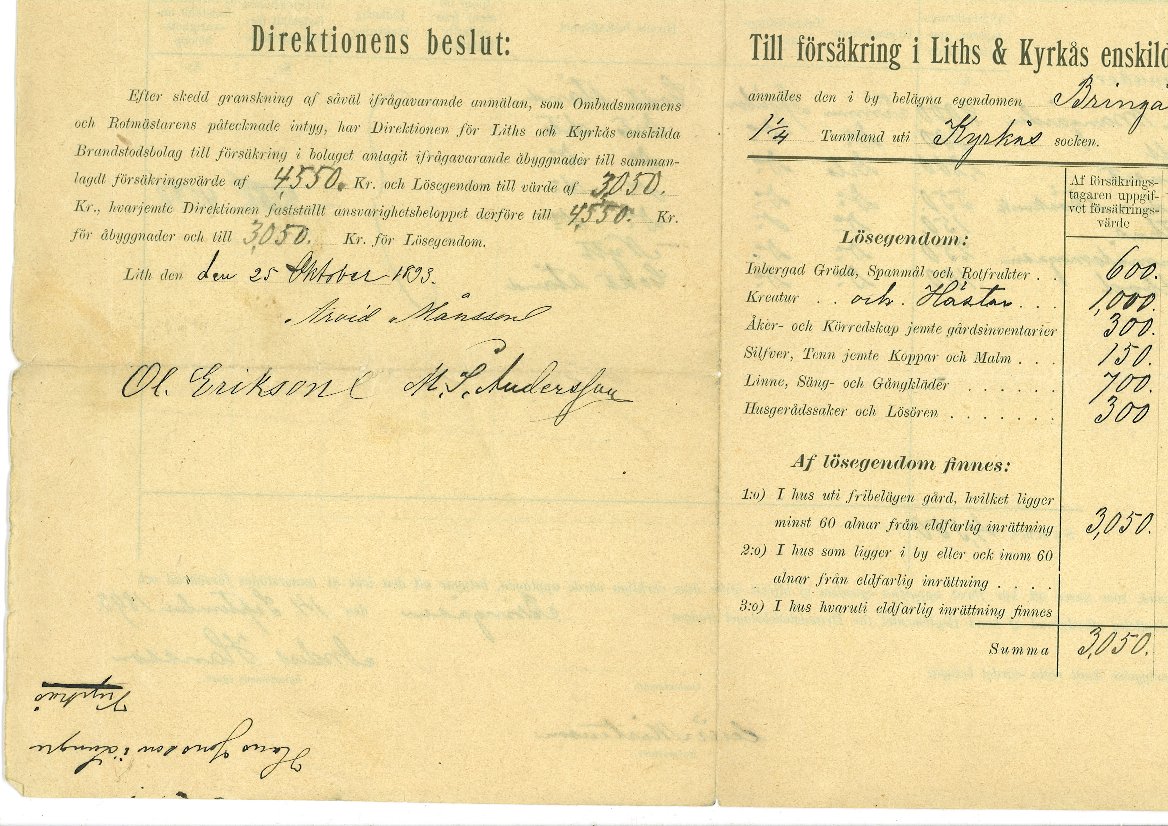 Direktionens beslut:
Efter skedd granskning af såväl ifrågavarande anmälan, som Ombudsmannens
och Rotmästarens påtecknade intyg, har Direktionen för Liths och Kyrkås enskilda
Brandstodsbolag till försäkring i bolaget antagit ifrågavarande åbyggnader till samman-
lagdt försäkringsvärde af 4,550. Kr. och Lösegendom till värde af 3,050.
Kr., hvarjemte Direktionen fastställt ansvarighetsbeloppet derföre till 4,550. Kr.
för åbyggnader och till 3,050. Kr. för Lösegendom.
Lith den den 25 Oktober 1893.
Arvid Månsson
Ol. Erikson M. S. Andersson
Kyrkås
Hans Jonsson i
Till försäkring i Liths & Kyrkås enskild
anmäles den i by belägna egendomen Bringå
1 1/4 Tunnland uti Kyrkås socken.
Af försäkrings-
tagaren uppgif-
vet försäkrings-
värde
Lösegendom:
Inbergad Gröda, Spanmål och Rotfrukter . 600.
Kreatur . . och Hästar . . . 1,000.
Åker- och Körredskap jemte gårdsinventarier 300.
Silfver, Tenn jemte Koppar och Malm . . . 150.
Linne, Säng- och Gångkläder . . . . . . 700.
Husgerådssaker och Lösören . . . . . . . 300
Af lösegendom finnes:
1:o) I hus uti fribelägen gård, hvilket ligger
minst 60 alnar från eldfarlig inrättning 3,050.
2:o) I hus som ligger i by eller ock inom 60
alnar från eldfarlig inrättning . . . .
3:o) I hus hvaruti eldfarlig inrättning finnes
Summa 3,050.